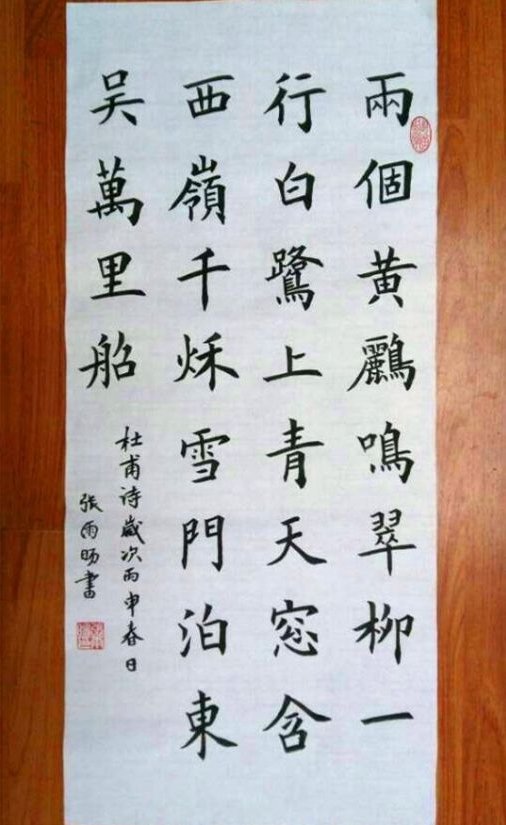 兩個黃鸝鳴翠柳一
行白鷺上青天窓含
西嶺千秌雪門泊東
吴萬里船
杜甫詩歲次丙申春日
張雨昉書